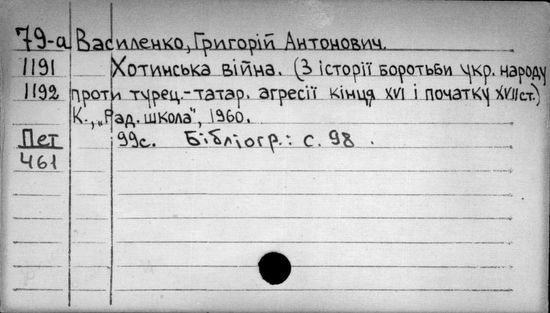 79-а Василенко, Григорій Антонович.
1191 Хотинська війна. (З історії боротьби укр. народу
1192 проти турец.-татар. агресії кінця XVI і початку XVII ст.)
К., „Рад. школа", 1960.
Пет 99с. Бібліогр.: с. 98.
461